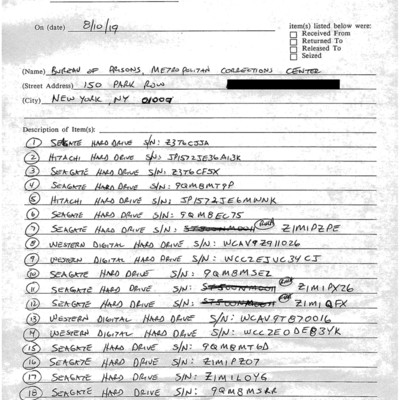 On (date) 8/10/19
item(s) listed below were:
Received From
Returned To
Released To
Seized
(Name) BUREAU OF PRISONS, METROPOLITAN CORRECTION CENTER
(Street Address) 150 PARK ROW
(City) NEW YORK, NY
Description of Item(s):
1 SEAGATE HARD DRIVE S/N: Z376CJJA
2 HITACHI HARD DRIVE S/N: JP1572JE36A13K
3 SEAGATE HARD DRIVE S/N: Z376CFSX
4 SEAGATE HARD DRIVE S/N: 9QM8MT9P
5 HITACHI HARD DRIVE S/N: JP1572JE6MWNNK
6 SEAGATE HARD DRIVE S/N: 9QM8EC75
7 SEAGATE HARD DRIVE S/N: Z1M1PZPE
8 WESTERN DIGITAL HARD DRIVE S/N: WCAV9Z911026
9 WESTERN DIGITAL HARD DRIVE S/N: WCC2EJVC34CJ
10 SEAGATE HARD DRIVE S/N: 9QM8MSEZ
11 SEAGATE HARD DRIVE S/N: Z1M1PX26
12 SEAGATE HARD DRIVE S/N: Z1M1QFX
13 WESTERN DIGITAL HARD DRIVE S/N: WCAV9T870016
14 WESTERN DIGITAL HARD DRIVE S/N: WCC2E0DEB3YK
15 SEAGATE HARD DRIVE S/N: 9QM8MT6D
16 SEAGATE HARD DRIVE S/N: Z1M1PZ07
17 SEAGATE HARD DRIVE S/N: Z1M1L0YG
18 SEAGATE HARD DRIVE S/N: 9QM8MSRR